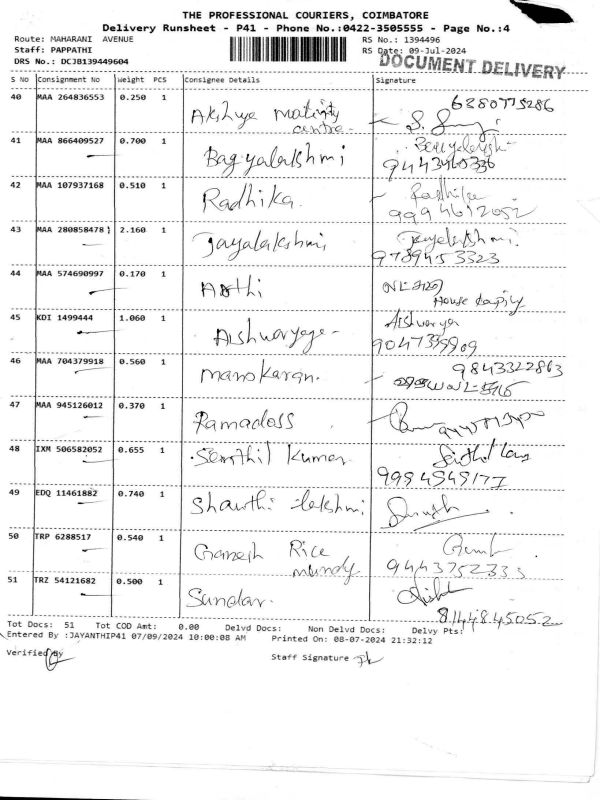 THE PROFESSIONAL COURIERS, COIMBATORE
Delivery Runsheet - P41 - Phone No.:0422-3505555 - Page No.:4
Route: MAHARANI AVENUE
RS No.: 1394496
Staff: PAPPATHI
RS Date: 09-Jul-2024
DRS No.: DCJB139449604
DOCUMENT DELIVERY
S No Consignment No Weight PCS Consignee Details Signature
40 MAA 264836553 0.250 1 6380775286
centre
41 MAA 866409527 0.700 1 Bagyalakshmi
42 MAA 107937168 0.510 1 Radhika. Radhika
9994612052
43 MAA 280858478 2.160 1 Jayalakshmi Jayalakshmi
9789453323
44 MAA 574690997 0.170 1
House
45 KDI 1499444 1.060 1 Aishwarya
46 MAA 704379918 0.560 1 Manokaran. 9843322863
47 MAA 945126012 0.370 1 Ramadoss
48 IXM 506582052 0.655 1 Senthil Kumar
9994949177
49 EDQ 11461882 0.740 1
50 TRP 6288517 0.540 1 Ganesh Rice
mundy 9443752333
51 TRZ 54121682 0.500 1 Sundar.
8144845052
Tot Docs: 51 Tot COD Amt: 0.00 Delvd Docs: Non Delvd Docs: Delvy Pts:
Entered By :JAYANTHIP41 07/09/2024 10:00:08 AM Printed On: 08-07-2024 21:32:12
Verified By Staff Signature